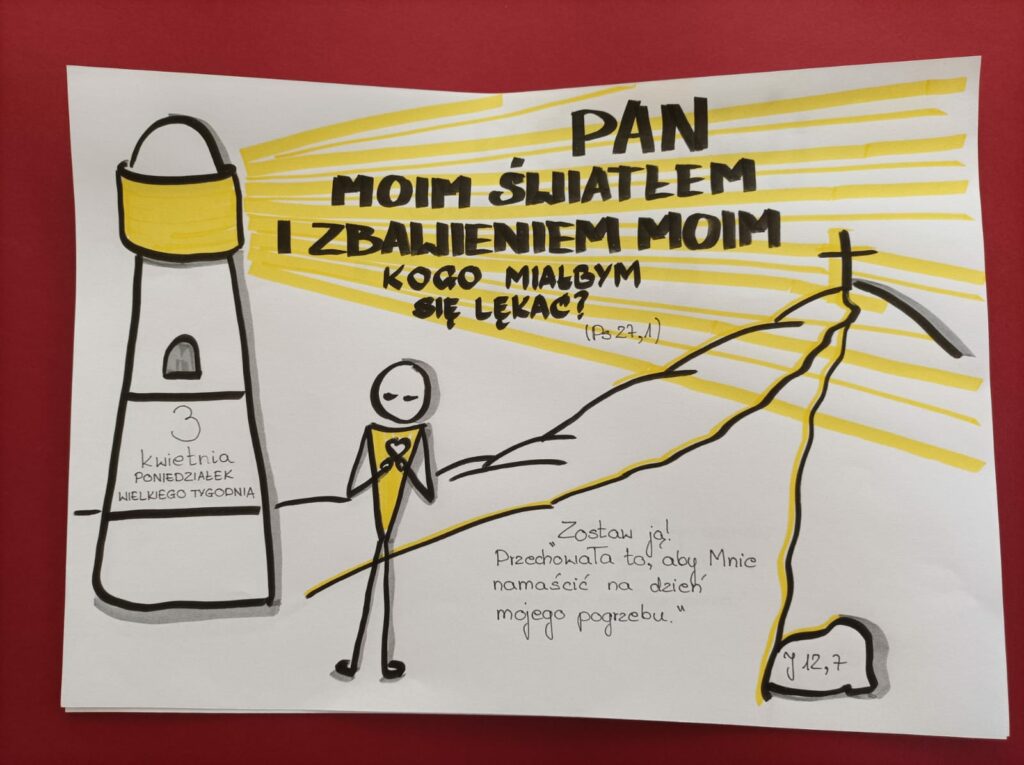 PAN
MOIM ŚWIATŁEM
I ZBAWIENIEM MOIM
KOGO MIAŁBYM
SIĘ LĘKAĆ?
(Ps 27,1)
3
kwietnia
PONIEDZIAŁEK
WIELKIEGO TYGODNIA
"Zostaw ją!
Przechowała to, aby Mnie
namaścić na dzień
mojego pogrzebu."
J 12,7